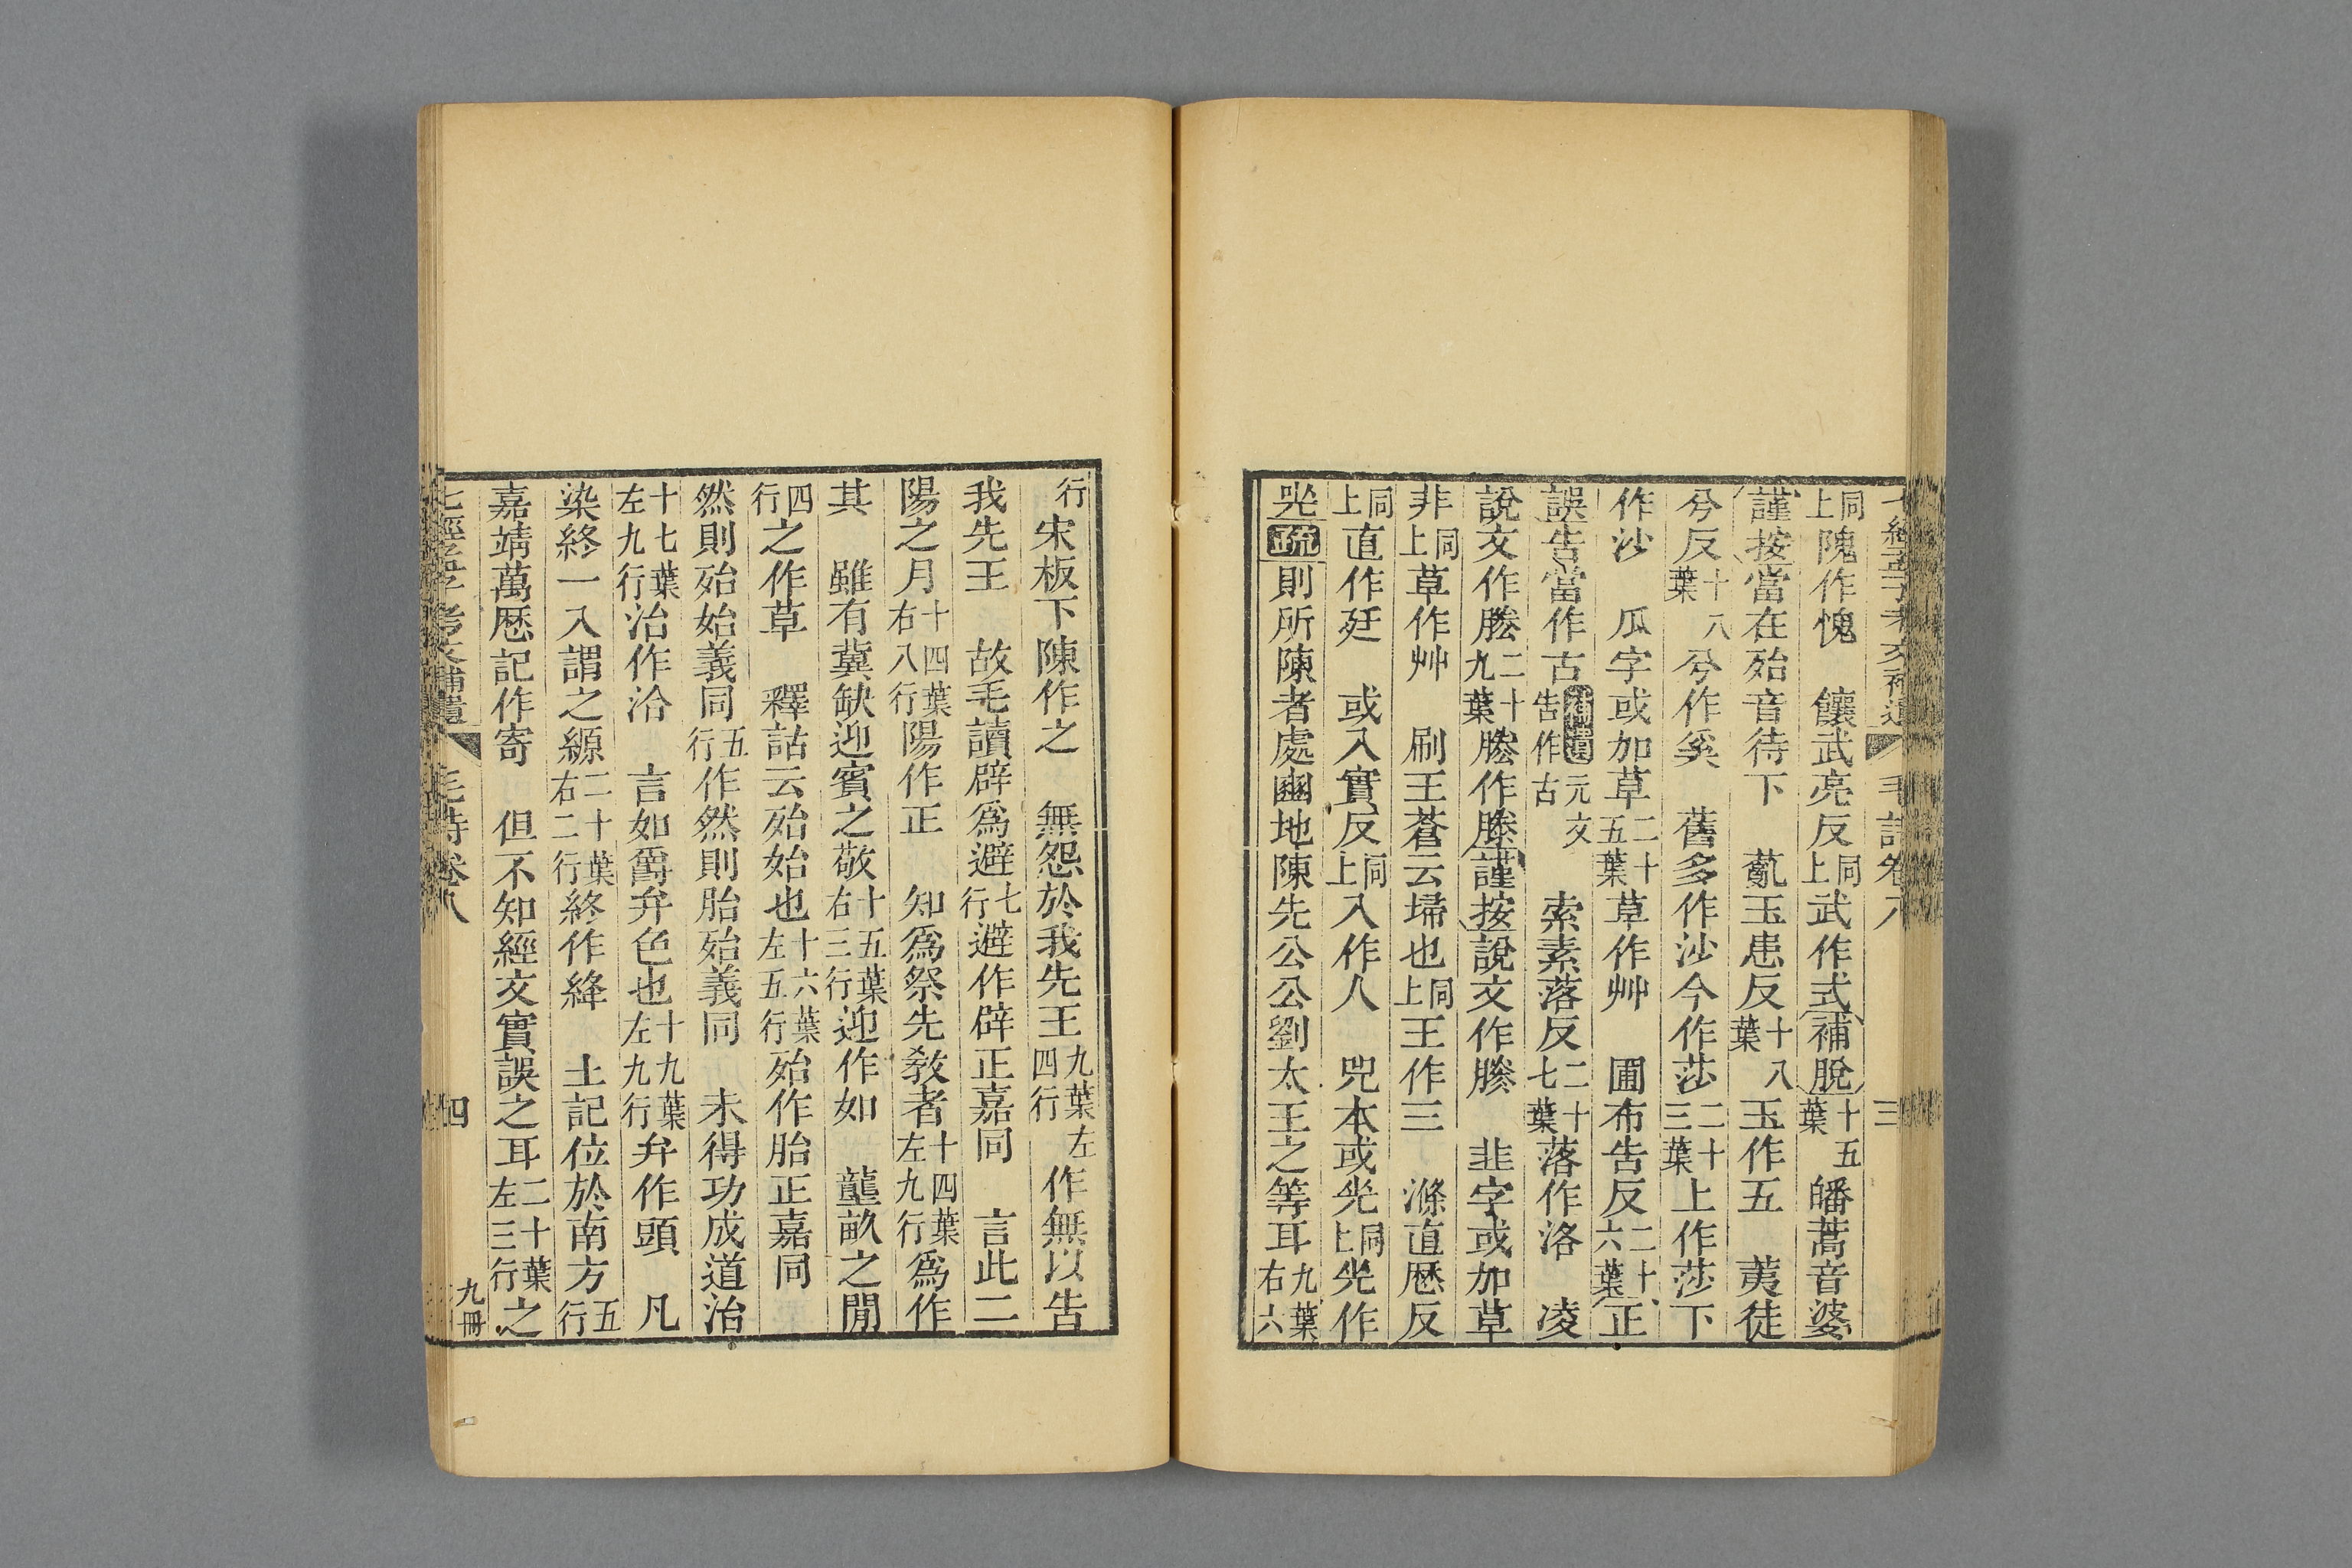 七經孟子考文補遺 毛詩卷八 三
同上隗作愧 饟武亮反同上武作式補脫十五葉 皤蒿音婆
謹按當在殆音待下 薍玉患反十八葉玉作五 荑徒
兮反十八葉兮作奚 舊多作沙今作莎二十三葉上作莎下
作沙 瓜字或加草二十五葉草作艸 圃布告反二十六葉正
誤告當作古補遺元文告作古 索素落反二十七葉落作洛 凌
說文作勝二十九葉勝作塍謹按說文作䞉 韭字或加草
非同上草作艸 刷王蒼云埽也同上王作三 滌直曆反
同上直作廷 或入實反同上入作人 兕本或光同上光作
𠒎疏則所陳者處豳地陳先公公劉太王之等耳九葉右六
行宋板下陳作之 無怨於我先王九葉左四行作無以告
我先王 故毛讀辟爲避七行避作辟正嘉同 言此二
陽之月十四葉右八行陽作正 知爲祭先教者十四葉左九行爲作
其 雖有冀缺迎賓之敬十五葉右三行迎作如 壟畝之閒
四行之作草 釋詁云殆始也十六葉左五行殆作胎正嘉同
然則殆始義同五行作然則胎殆義同 未得功成道治
十七葉左九行治作洽 言如爵弁色也十九葉左九行弁作頭 凡
染終一入謂之縓二十葉右二行終作絳 土記位於南方五行
嘉靖萬曆記作寄 但不知經文實誤之耳二十葉左三行之
七經孟子考文補遺 毛詩卷八 四 九冊